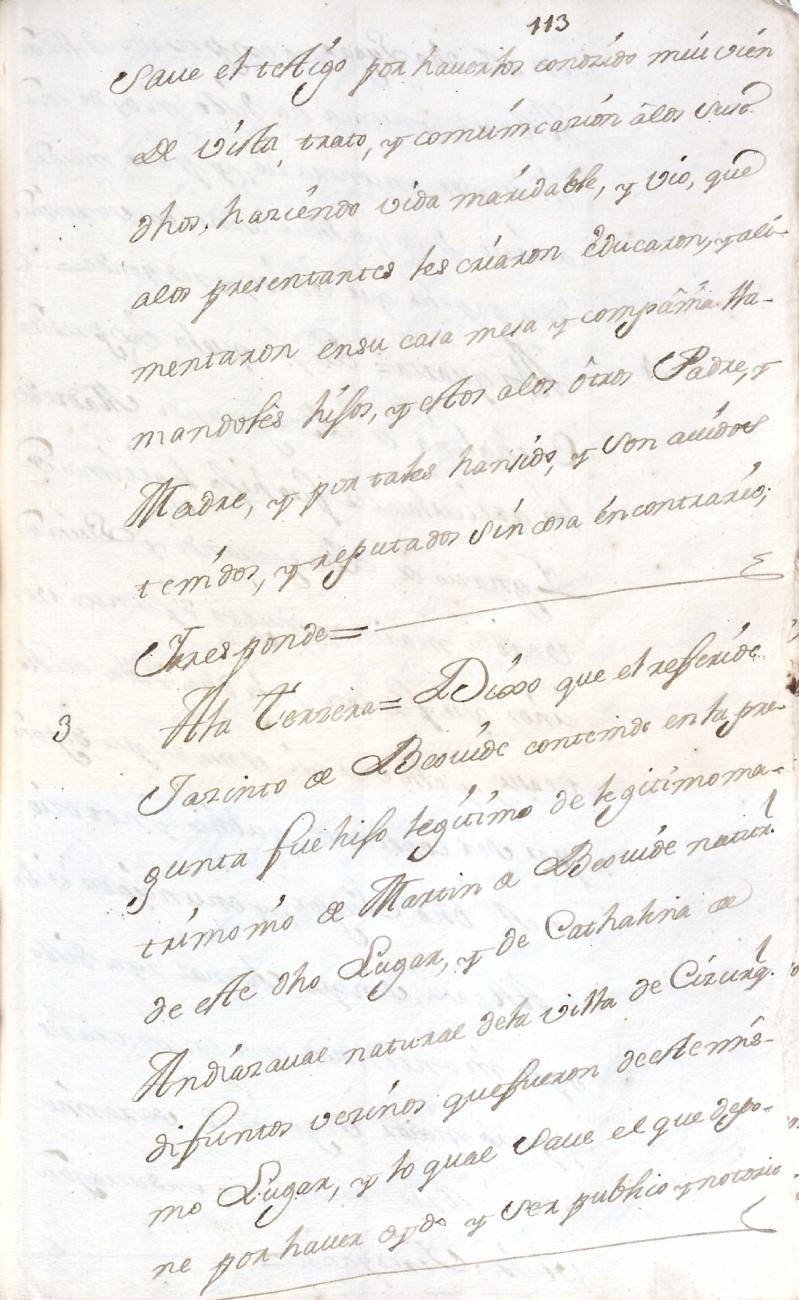 113
Save el testigo por haverlos conozido mui vien
de vista, trato, y comunicazion â los suso
dhos, haziendo vida maridable, y vio, que
alos presentantes les criaron êducaron, y ali-
mentaron en su casa mesa y compâñia lla-
mandolês hijos, y estos alos ôtros Padre, y
Madre, y por tales han sido, y son auidos
tenidos, y reputados sin cosa én contrario;
Yresponde=
3 Ala Terzera= Dixo que el refferido
Jazinto de Beouide contenido en la pre-
gunta fue hijo legitimo de legitimo ma-
trimonio de Martin de Beouide natural
de este dho Lugar, y de Cathalina de
Andiazaval natural dela villa de Cizurql.
difuntos vezinos que fueron de este mis-
mo Lugar, y lo qual Save el que depo-
ne por haver oydo y ser publico y notorio